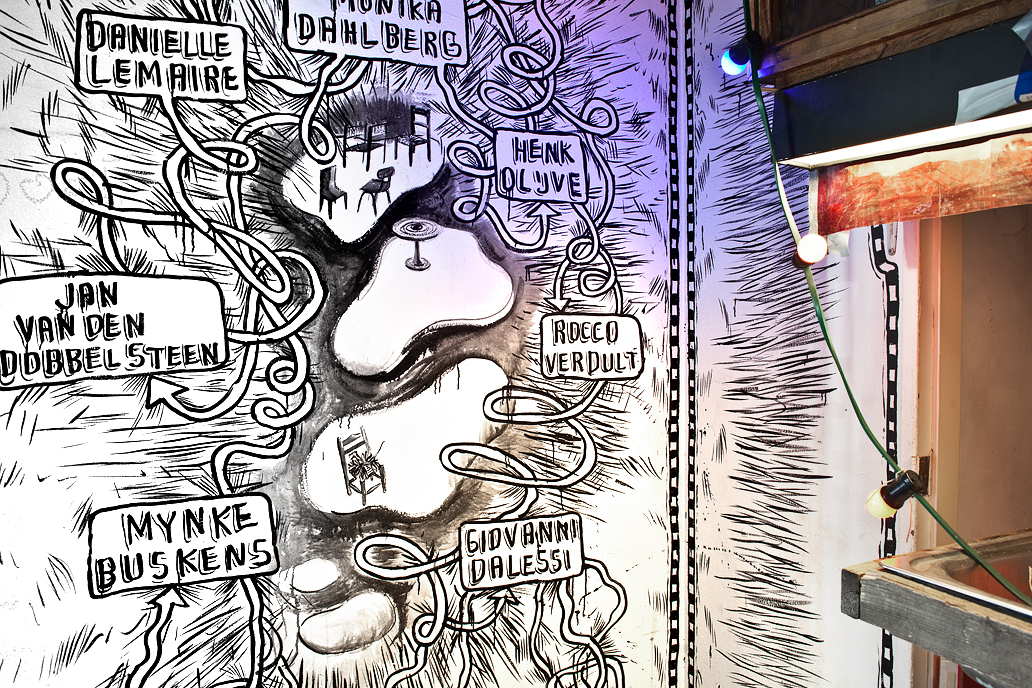 MONIKA
DAHLBERG
DANIELLE
LEMAIRE
HENK
OLIJVE
JAN
VAN DEN
DOBBELSTEEN
ROCCO
VERDULT
MYNKE
BUSKENS
GIOVANNI
DALESSI